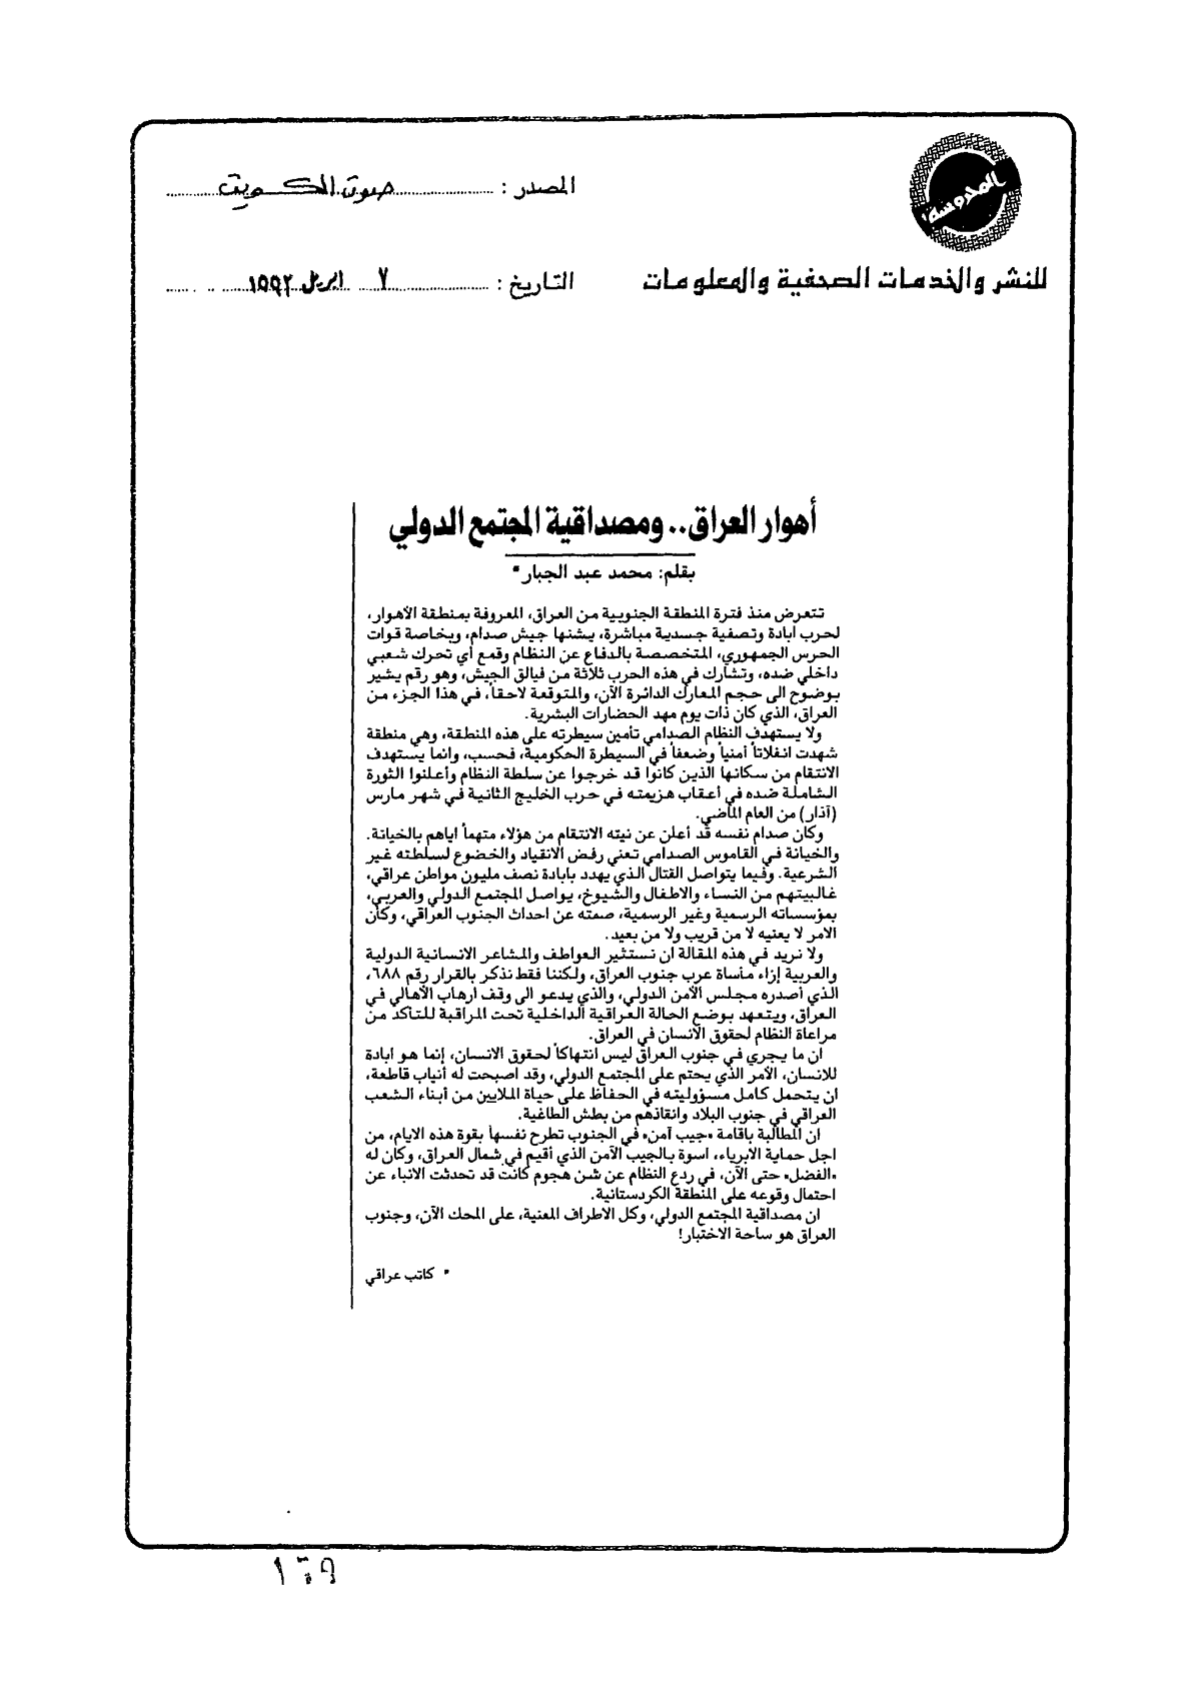 المحروسة
المصدر : صوت الكويت
للنشر والخدمات الصحفية والمعلومات
التاريخ : ٧ ابريل ١٩٩٢
أهوار العراق.. ومصداقية المجتمع الدولي
بقلم: محمد عبد الجبار*
تتعرض منذ فترة المنطقة الجنوبية من العراق، المعروفة بمنطقة الأهوار،
لحرب ابادة وتصفية جسدية مباشرة، يشنها جيش صدام، وبخاصة قوات
الحرس الجمهوري، المتخصصة بالدفاع عن النظام وقمع أي تحرك شعبي
داخلي ضده، وتشارك في هذه الحرب ثلاثة من فيالق الجيش، وهو رقم يشير
بوضوح الى حجم المعارك الدائرة الآن، والمتوقعة لاحقاً، في هذا الجزء من
العراق، الذي كان ذات يوم مهد الحضارات البشرية.
ولا يستهدف النظام الصدامي تأمين سيطرته على هذه المنطقة، وهي منطقة
شهدت انفلاتاً أمنياً وضعفاً في السيطرة الحكومية، فحسب، وانما يستهدف
الانتقام من سكانها الذين كانوا قد خرجوا عن سلطة النظام وأعلنوا الثورة
الشاملة ضده في أعقاب هزيمته في حرب الخليج الثانية في شهر مارس
(آذار) من العام الماضي.
وكان صدام نفسه قد أعلن عن نيته الانتقام من هؤلاء متهماً اياهم بالخيانة.
والخيانة في القاموس الصدامي تعني رفض الانقياد والخضوع لسلطته غير
الشرعية. وفيما يتواصل القتال الذي يهدد بابادة نصف مليون مواطن عراقي،
غالبيتهم من النساء والاطفال والشيوخ، يواصل المجتمع الدولي والعربي،
بمؤسساته الرسمية وغير الرسمية، صمته عن احداث الجنوب العراقي، وكأن
الامر لا يعنيه لا من قريب ولا من بعيد.
ولا نريد في هذه المقالة ان نستثير العواطف والمشاعر الانسانية الدولية
والعربية إزاء مأساة عرب جنوب العراق، ولكننا فقط نذكر بالقرار رقم ٦٨٨،
الذي أصدره مجلس الأمن الدولي، والذي يدعو الى وقف ارهاب الأهالي في
العراق، ويتعهد بوضع الحالة العراقية الداخلية تحت المراقبة للتأكد من
مراعاة النظام لحقوق الانسان في العراق.
ان ما يجري في جنوب العراق ليس انتهاكاً لحقوق الانسان، إنما هو ابادة
للانسان، الأمر الذي يحتم على المجتمع الدولي، وقد اصبحت له أنياب قاطعة،
ان يتحمل كامل مسؤوليته في الحفاظ على حياة الملايين من أبناء الشعب
العراقي في جنوب البلاد وانقاذهم من بطش الطاغية.
ان المطالبة باقامة «جيب آمن» في الجنوب تطرح نفسها بقوة هذه الايام، من
اجل حماية الابرياء، اسوة بالجيب الآمن الذي أقيم في شمال العراق، وكان له
«الفضل» حتى الآن، في ردع النظام عن شن هجوم كانت قد تحدثت الانباء عن
احتمال وقوعه على المنطقة الكردستانية.
ان مصداقية المجتمع الدولي، وكل الاطراف المعنية، على المحك الآن، وجنوب
العراق هو ساحة الاختبار!
* كاتب عراقي